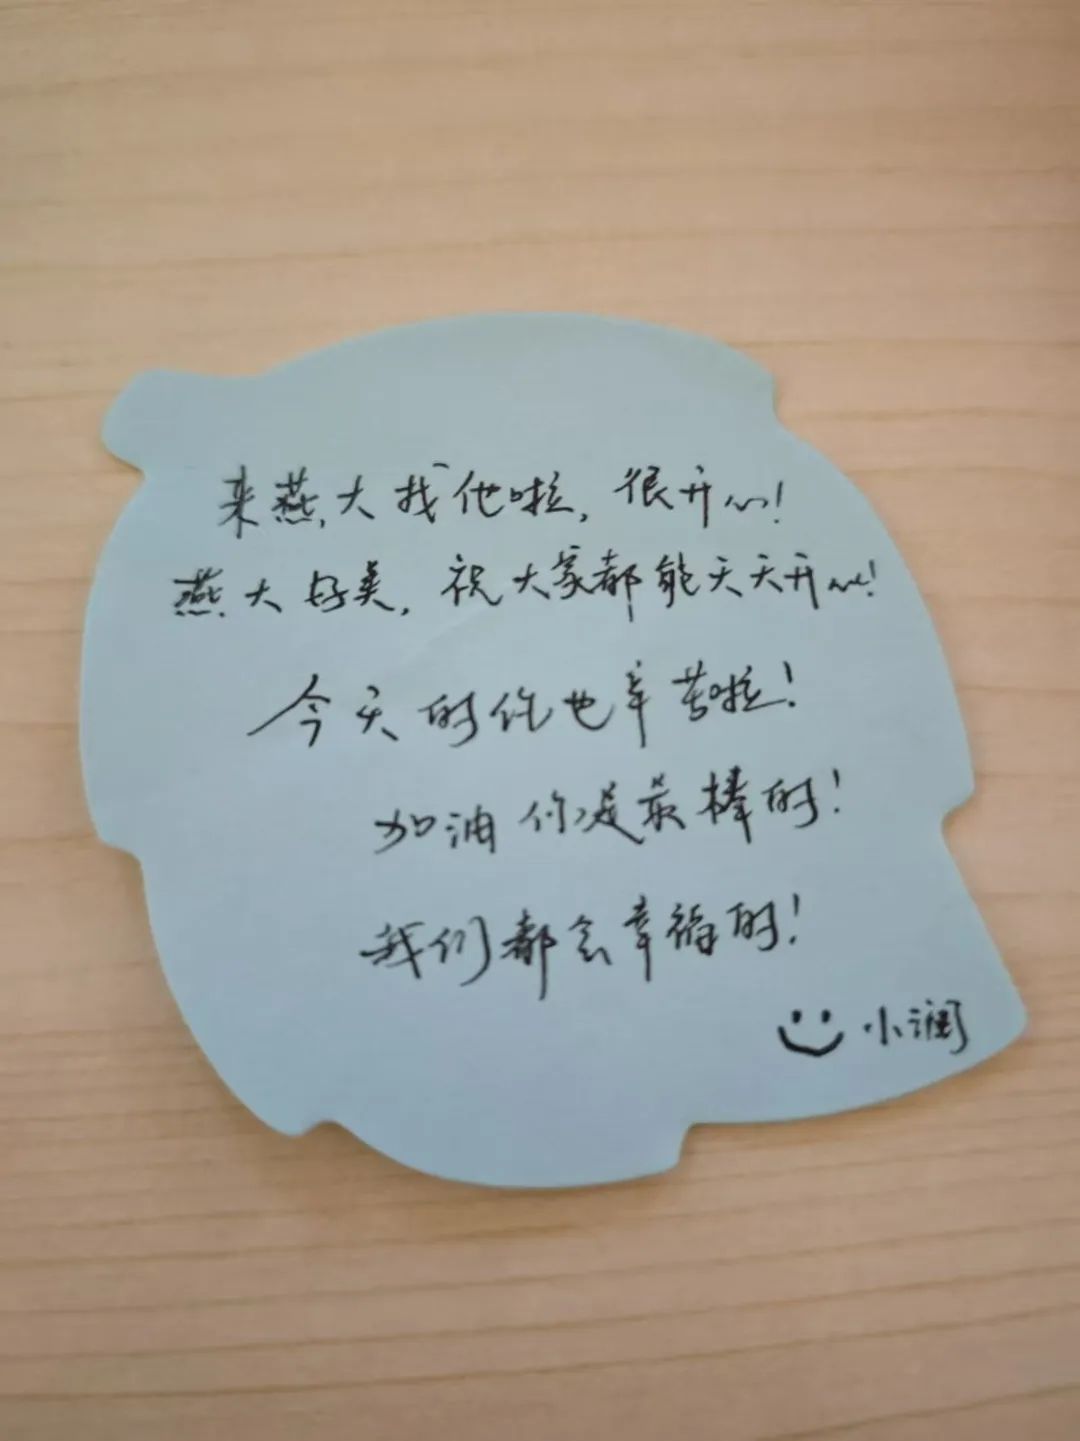 来燕大找他啦，很开心！
燕大好美，祝大家都能天天开心！
今天的你也辛苦啦！
加油你是最棒的！
我们都会幸福的！
小润